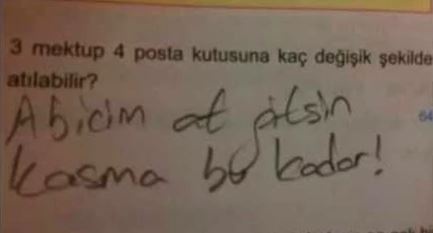 3 mektup 4 posta kutusuna kaç değişik şekilde
atılabilir?
Abicim at gitsin
64
Kasma bu kadar!